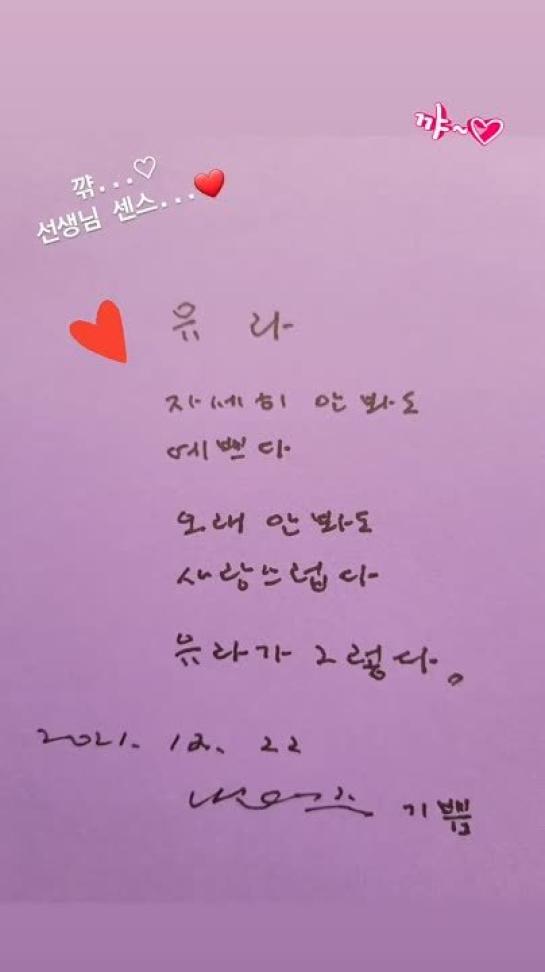 꺄~
꺆...♡
선생님 센스...❤️
유 라
자세히 안 봐도
예쁘다
오래 안 봐도
사랑스럽다
유라가 그렇다.
2021. 12. 22
기쁨